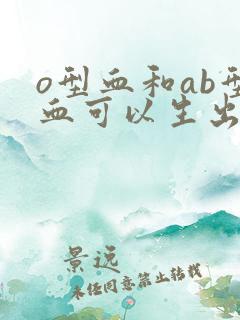 o型血和ab型
血可以生出
景远
未经同意禁止转载